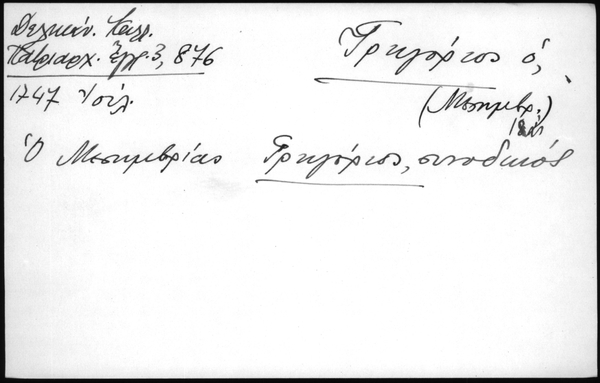 Δελικάν. Καλλ.
Πατριαρχ. Ἔγγρ. 3, 876
1747 Ἰούλ.
Γρηγόριος ὁ,
(Μεσημβρ.)
Ὁ Μεσημβρίας Γρηγόριος, συνοδικός